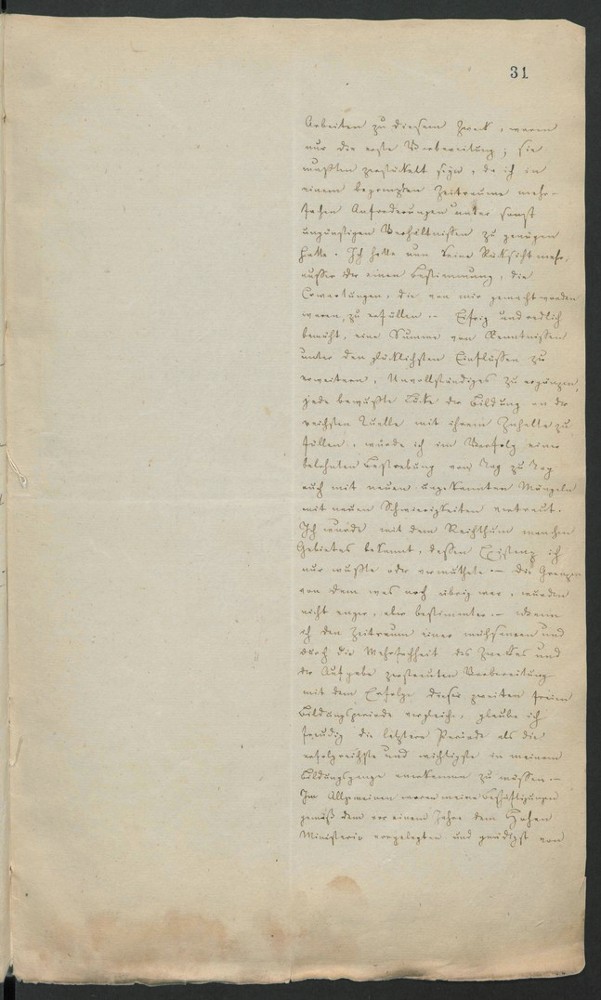 31
Arbeiten zu diesem Zwek, waren
nur die erste Vorbereitung; sie
mußten zerstükelt seyn, da ich in
einem begrenzten Zeitraume mehr-
fachen Anforderungen unter sonst
ungünstigen Verhältnissen zu genügen
hatte. Ich hatte nun keine Rüksicht mehr,
außer der einen Bestimmung, die
Erwartungen, die von mir gemacht worden
waren, zu erfüllen. – Eifrig und redlich
bemüht, eine Summe von Kenntnissen
unter den glüklichsten Einflüssen zu
erweitern, Unvollständiges zu ergänzen,
jede bewußte Lüke der Bildung an der
reichsten Quelle mit ihrem Inhalte zu
füllen, wurde ich im Verfolg einer
belohnten Bestrebung von Tag zu Tag
auch mit neuen ungekannten Mängeln
mit neuen Schwierigkeiten vertraut.
Ich wurde mit dem Reichthum manchen
Gebietes bekannt, dessen Existenz ich
nur wußte oder vermuthete – Die Grenzen
von dem was noch übrig war, wurden
nicht enger, aber bestimmter – Wenn
ich den Zeitraum einer mühsamen und
durch die Mehrfachheit des Zwekes und
der Aufgabe zerstreuten Vorbereitung
mit dem Erfolge dieser zweiten freien
Bildungsperiode vergleiche, glaube ich
freudig die letztere Periode als die
erfolgreichste und wichtigste in meinem
Bildungsgange anerkennen zu müssen. –
Im Allgemeinen waren meine Beschäftigungen
gemäß dem vor einem Jahre dem Hohen
Ministerio vorgelegten und gnädigst von